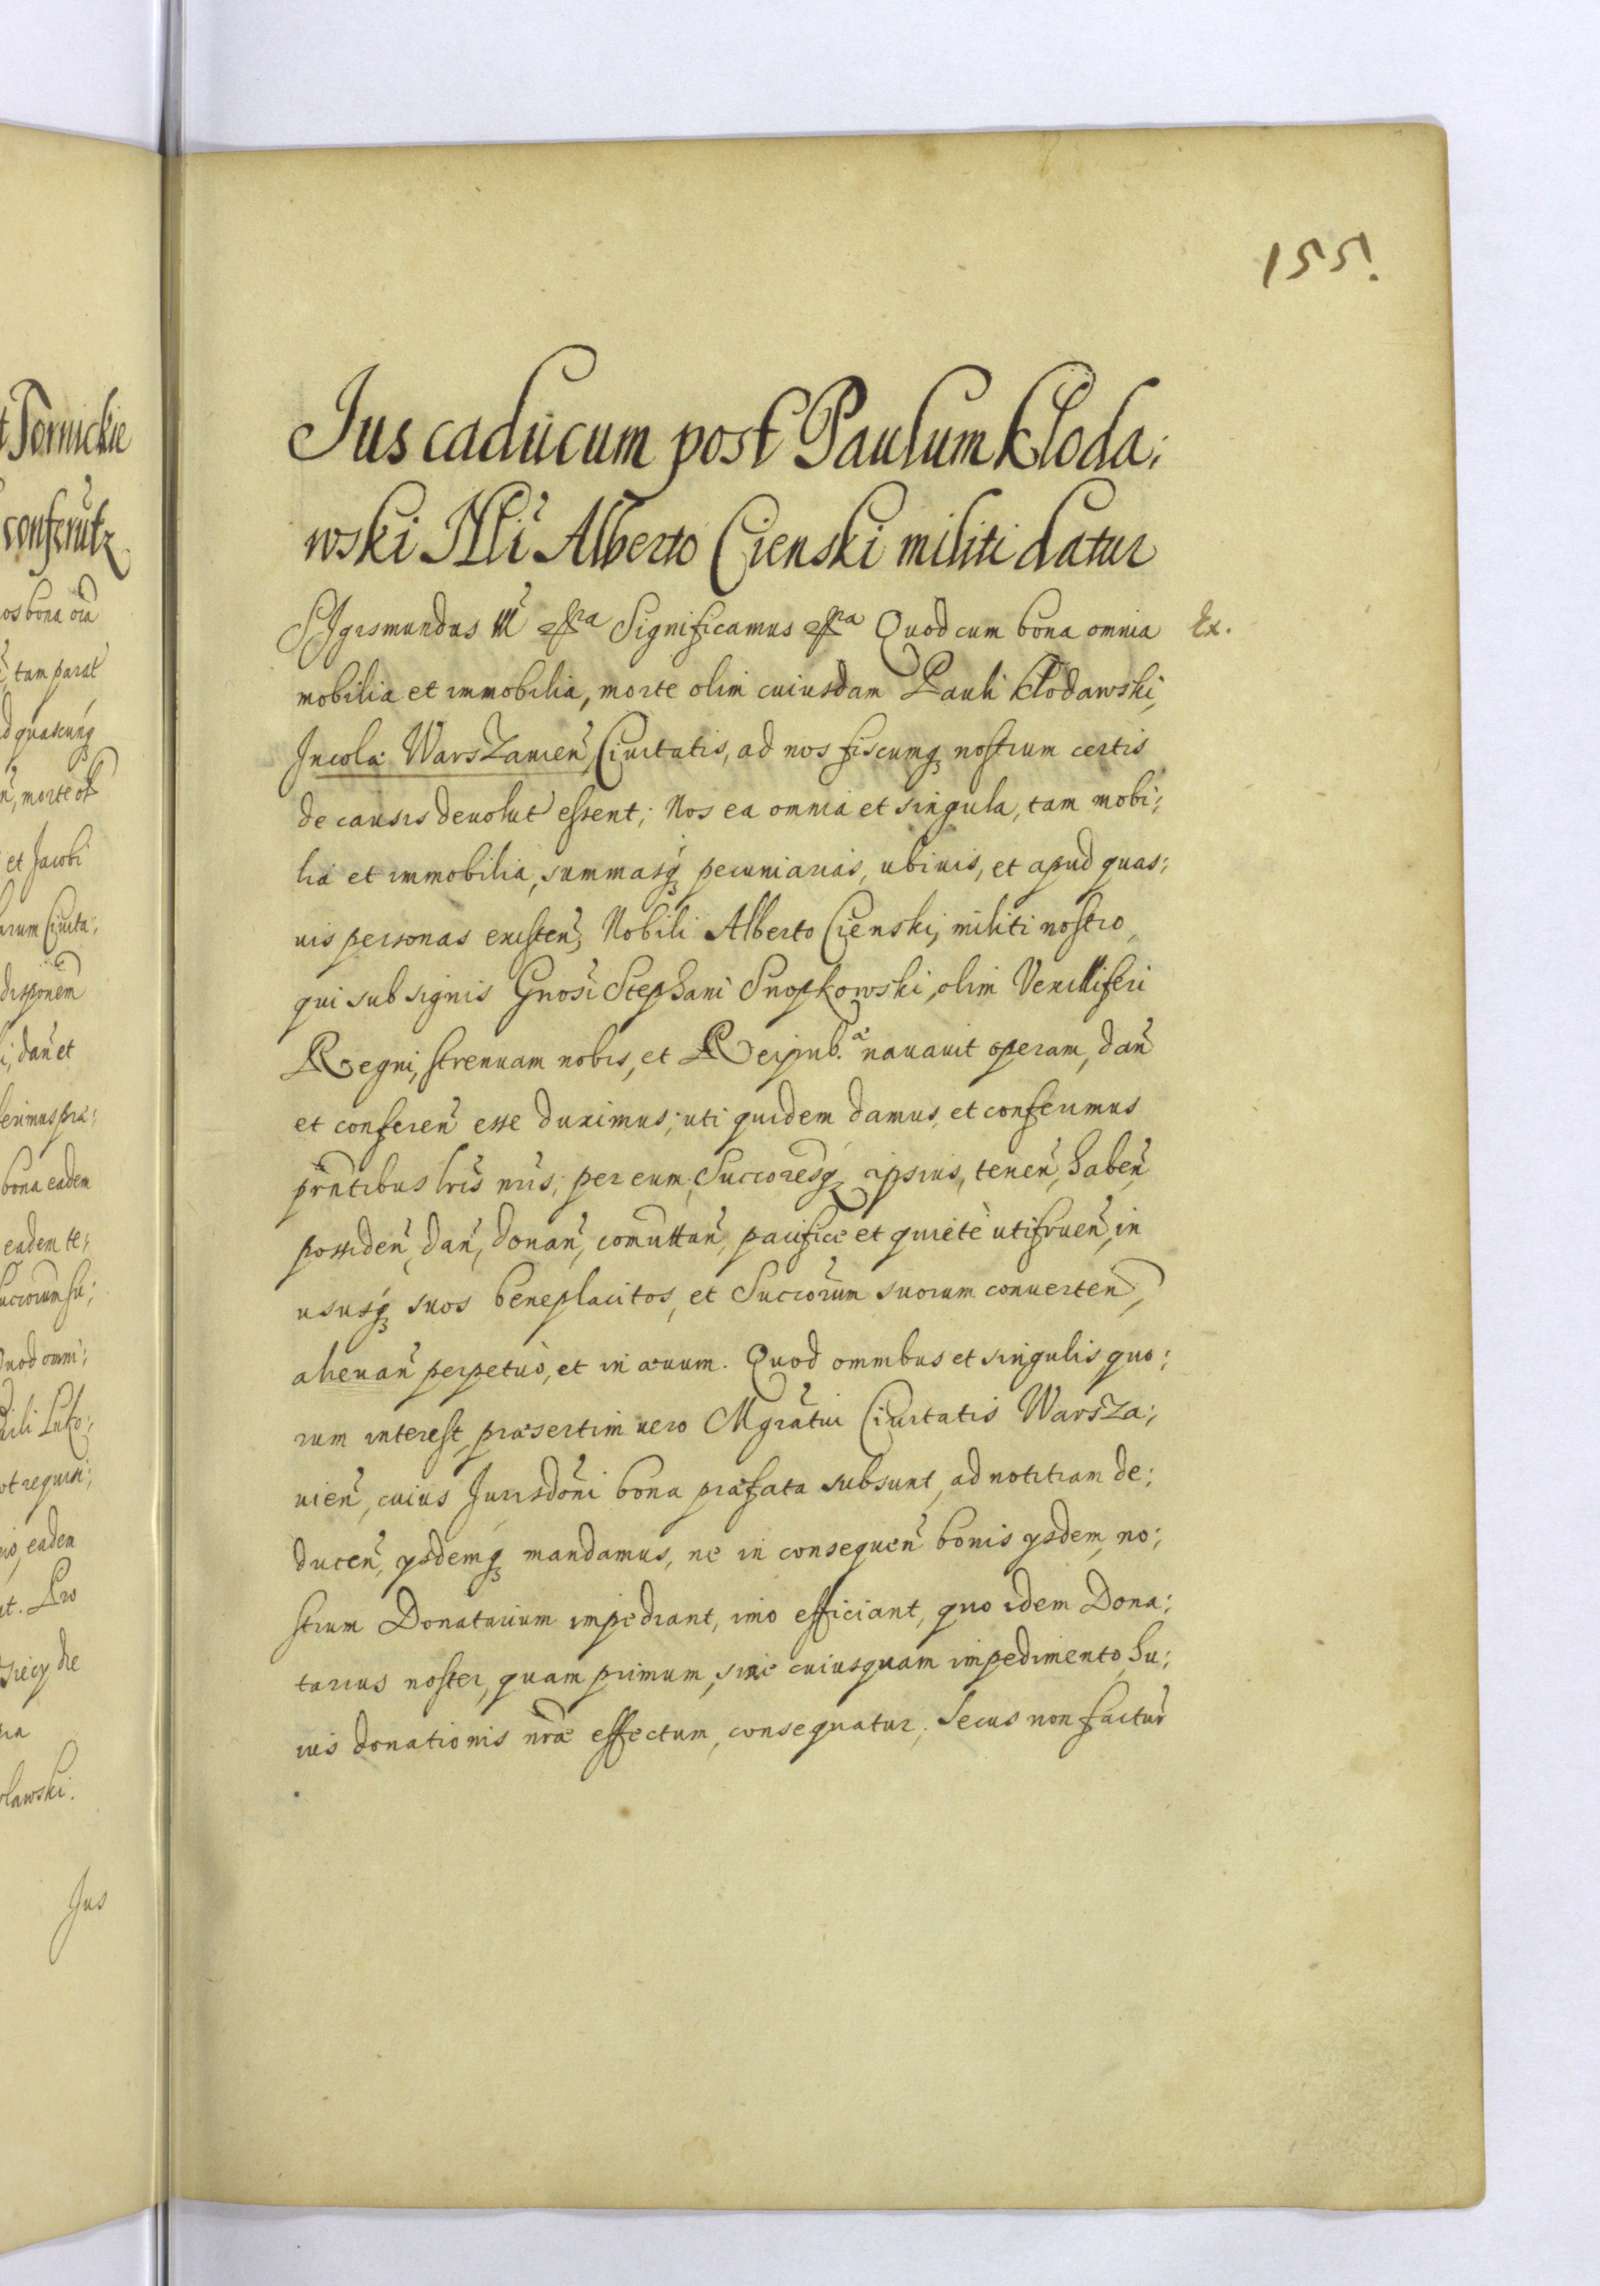 t Tornickie
conferūtz
os bona oīa
tam parat
d quascunq
morte ol
et Jacobi
arum Ciuita:
disponem
dan̄ et
ferimus præ:
bona eadem
eadem te:
uccorum su:
Quod omni:
bili Luko:
ot requisi:
eadem
at. Pro
slawski.
Jus
155.
Jus caducum post Paulum Kłoda:
wski Nłi Alberto Cienski militi datur
SJgismundus III &ra Significamus &ra Quod cum bona omnia
Ex.
mobilia et immobilia, morte olim cuiusdam Pauli Kłodawski,
Incolæ Warszauien̄, Ciuitatis, ad nos fiscumq nostrum certis
de causis deuolut essent; Nos ea omnia et singula, tam mobi:
lia et immobilia, summasq pecuniarias, ubiuis, et apud quas:
uis personas existen̄, Nobili Alberto Cienski, militi nostro,
qui sub signis Gnosi Stephani Snopkowski, olim Vexilliferi
Regni, strenuam nobis, et Reipub.æ nauauit operam, dan̄
et conferen̄ esse duximus; uti quidem damus, et conferimus
prntibus lris nris; per eum, Succoresq ipsius, tenen̄, haben̄,
possiden̄, dan̄, donan̄, comuttan̄, pacifice et quietè utifruen̄, in
ususq suos beneplacitos, et Succorum suorum conuerten̄,
alienan̄ perpetuò, et in æuum. Quod omnibus et singulis, quo:
rum interest, præsertim uero Mgratui Ciuitatis Warsza:
uien̄, cuius Jurisdoni bona præfata subsunt, ad notitiam de:
ducen̄, ysdemq mandamus, ne in consequen̄ bonis ysdem, no:
strum Donatarium impediant, imo efficiant, quo idem Dona:
tarius noster, quam primum, sine cuiusquam impedimento, hu:
ius donationis nræ effectum, consequatur. Secus non factur